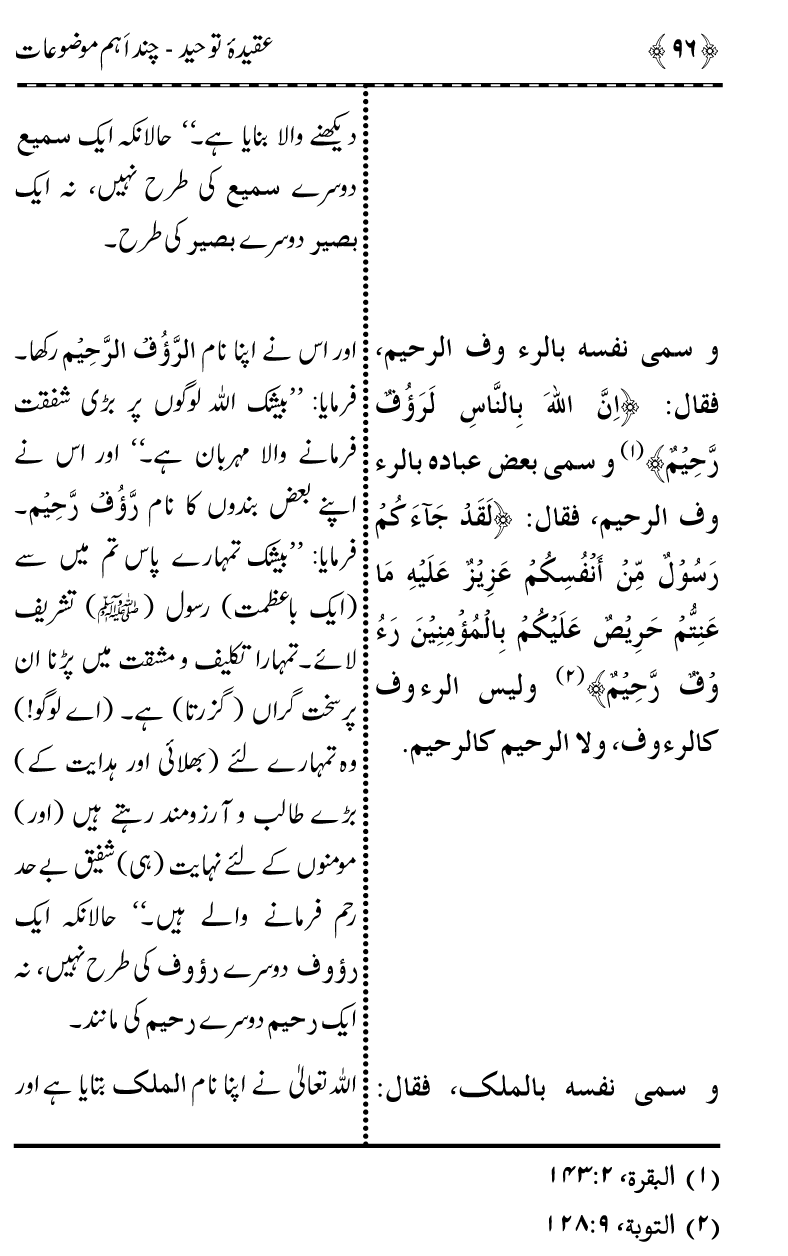 ﴿۹۶﴾
عقیدۂ توحید - چند اَہم موضوعات
و سمی نفسه بالرء وف الرحیم،
فقال: ﴿اِنَّ اللهَ بِالنَّاسِ لَرَؤُفٌ
رَّحِيْمٌ﴾(۱) و سمی بعض عباده بالرء
وف الرحیم، فقال: ﴿لَقَدْ جَآءَ كُمْ
رَسُوْلٌ مِّنْ أَنْفُسِكُمْ عَزِيْزٌ عَلَيْهِ مَا
عَنِتُّمْ حَرِيْصٌ عَلَيْكُمْ بِالْمُؤْمِنِيْنَ رَءُ
وْفٌ رَّحِيْمٌ﴾(۲) ولیس الرءوف
کالرءوف، ولا الرحیم کالرحیم.
و سمی نفسه بالملک، فقال:
دیکھنے والا بنایا ہے۔‘‘ حالانکہ ایک سمیع
دوسرے سمیع کی طرح نہیں، نہ ایک
بصیر دوسرے بصیر کی طرح۔
اور اس نے اپنا نام الرَّؤُفْ الرَّحِیْم رکھا۔
فرمایا: ’’بیشک اللہ لوگوں پر بڑی شفقت
فرمانے والا مہربان ہے۔‘‘ اور اس نے
اپنے بعض بندوں کا نام رَّؤُفْ رَّحِیْم۔
فرمایا: ’’بیشک تمہارے پاس تم میں سے
(ایک باعظمت) رسول (ﷺ) تشریف
لائے۔ تمہارا تکلیف و مشقت میں پڑنا ان
پر سخت گراں (گزرتا) ہے۔ (اے لوگو!)
وہ تمہارے لئے (بھلائی اور ہدایت کے)
بڑے طالب و آرزومند رہتے ہیں (اور)
مومنوں کے لئے نہایت (ہی) شفیق بے حد
رحم فرمانے والے ہیں۔‘‘ حالانکہ ایک
رؤوف دوسرے رؤوف کی طرح نہیں، نہ
ایک رحیم دوسرے رحیم کی مانند۔
اللہ تعالیٰ نے اپنا نام الملک بتایا ہے اور
(۱) البقرة، ۲:۱۴۳
(۲) التوبة، ۹:۱۲۸